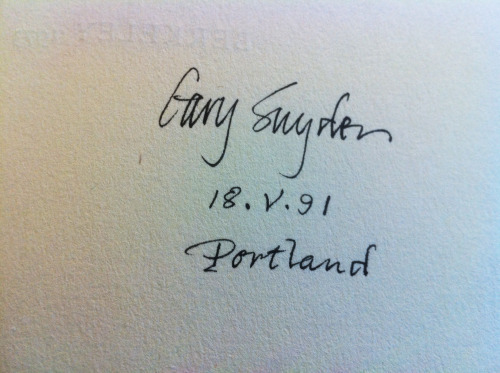 Gary Snyder
18.V.91
Portland